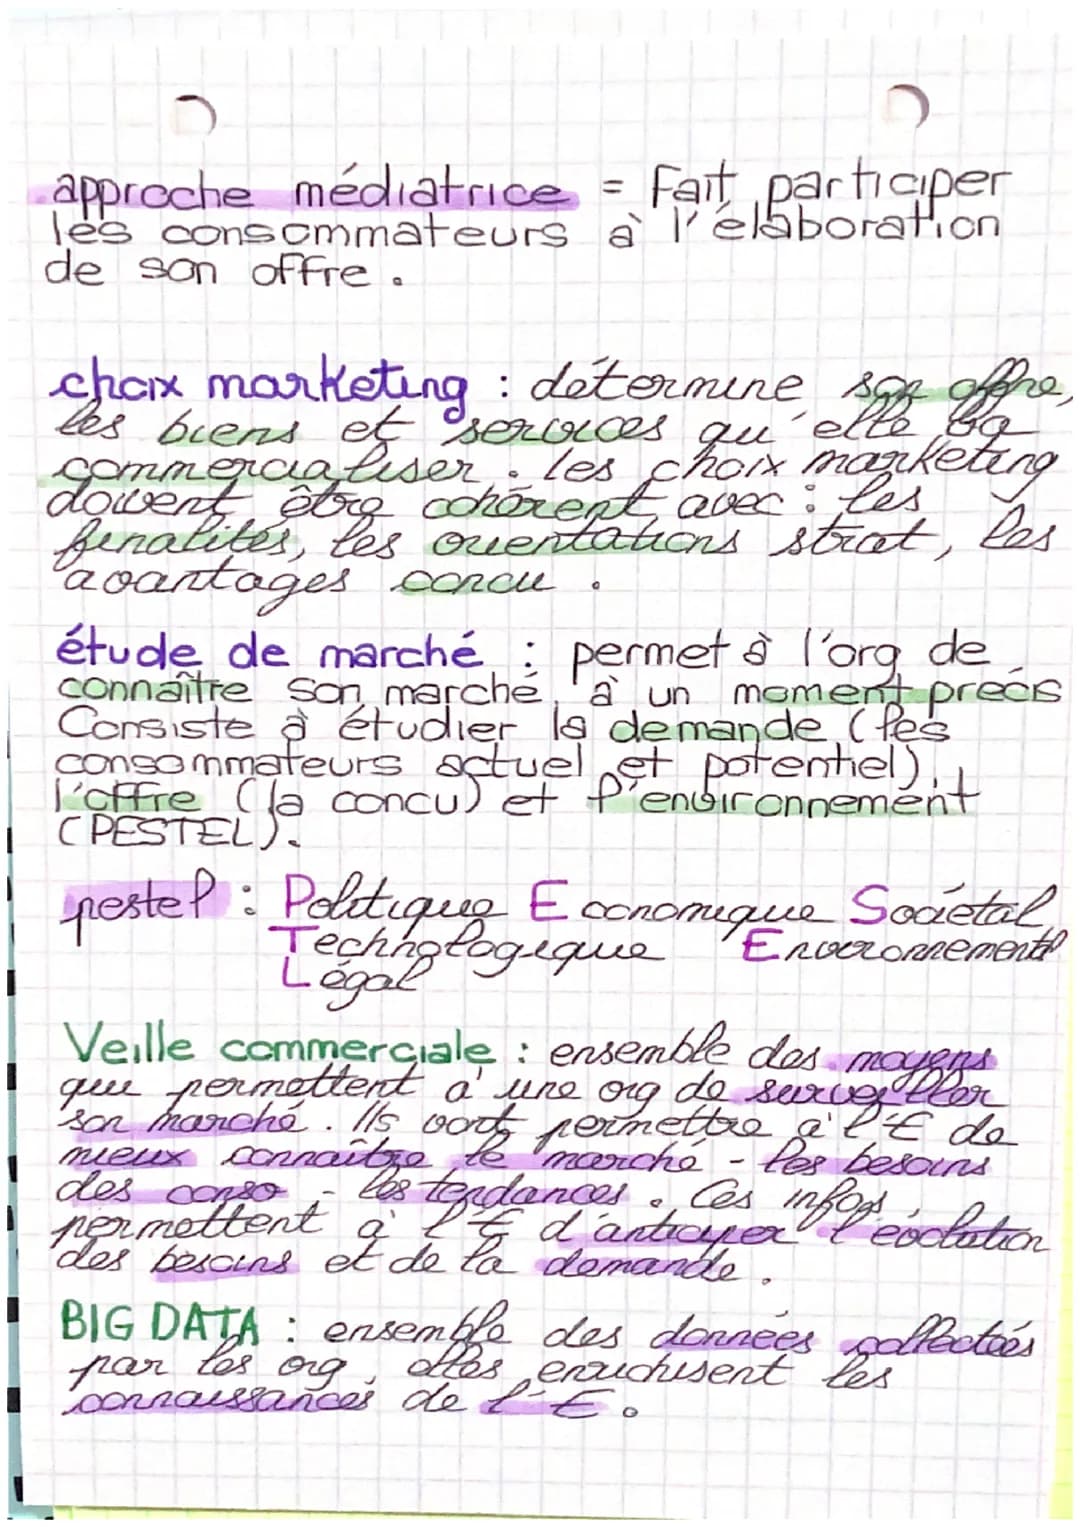 approche médiatrice = Fait participer
les consommateurs à l'élaboration
de son offre.
choix marketing : détermine son offre,
les biens et services qu'elle va
commercialiser. les choix marketing
doivent être cohérent avec : les
finalités, les orientations strat, les
avantages concu.
étude de marché : permet à l'org de
connaître son marché à un moment précis
Consiste à étudier la demande (les
consommateurs actuel et potentiel),
l'offre (la concu) et l'environnement
(PESTEL).
pestel : Politique Economique Sociétal
Technologique Environnemental
Légal
Veille commerciale : ensemble des moyens
qui permettent à une org de surveiller
son marché. Ils vont permettre à l'E de
mieux connaître le marché - les besoins
des conso - les tendances. Ces infos
permettent à l'E d'anticiper l'évolution
des besoins et de la demande.
BIG DATA : ensemble des données collectées
par les org, elles enrichisent les
connaissances de l'E.